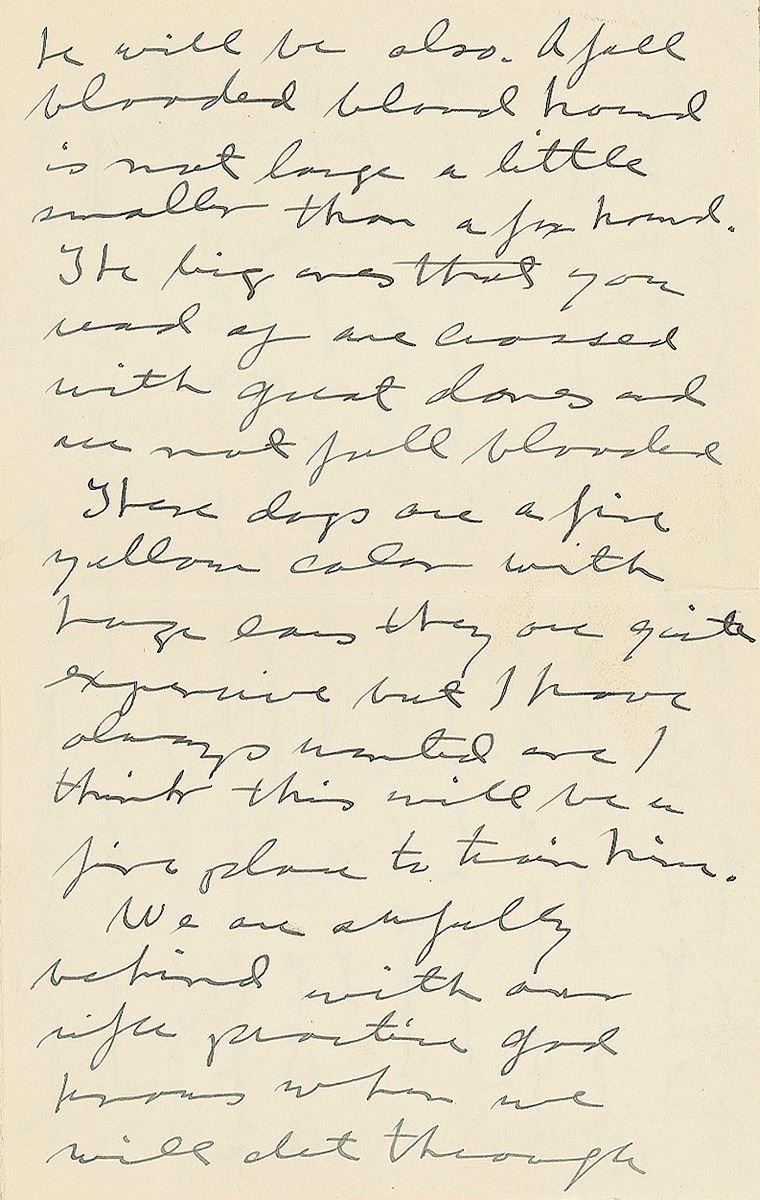 he will be also. A full
blooded blood hound
is not large a little
smaller than a fox hound.
The big ones that you
read of are crossed
with great danes and
are not full blooded
These dogs are a fine
yellow color with
huge ears they are quite
expensive but I have
always wanted one I
think this will be a
fine place to train him.
We are awfully
behind with our
rifle practice god
knows when we
will det through